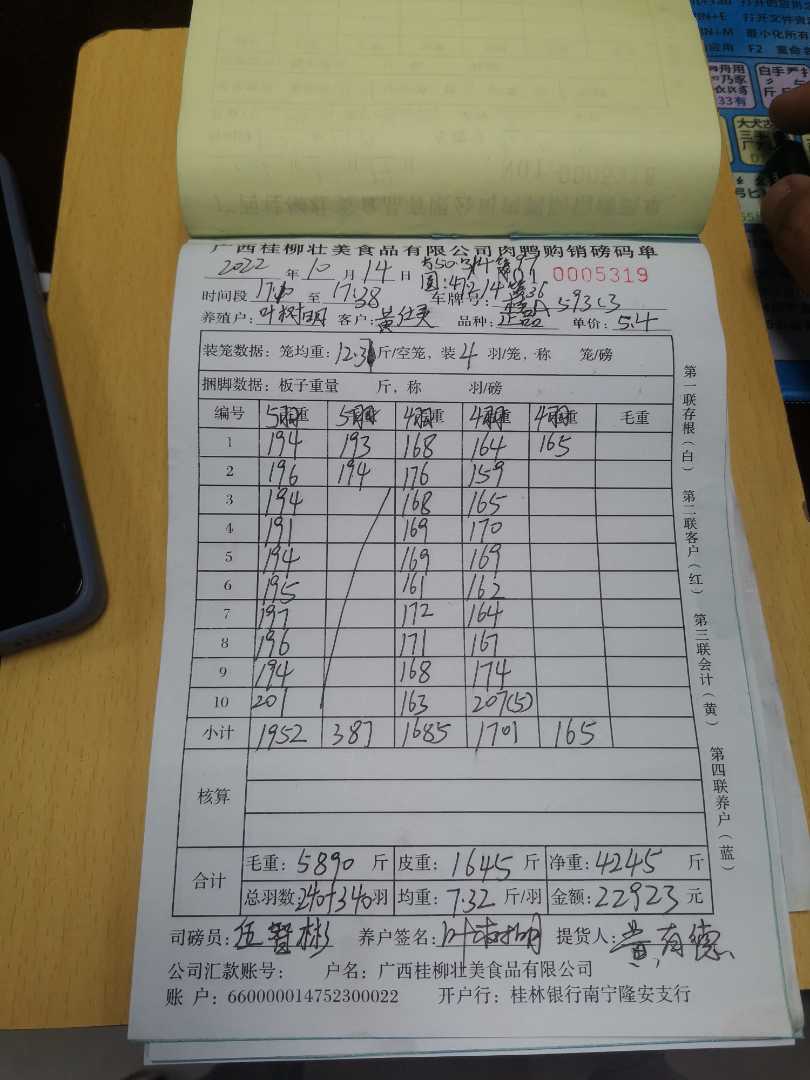 广西桂柳壮美食品有限公司肉鸭购销磅码单
2022 年 10 月 14 日
0005319
时间段 17:10 至 17:38 车牌号:
养殖户: 叶树明 客户: 黄仕灵 品种: 单价: 5.4
装笼数据: 笼均重: 12.3 斤/空笼, 装 4 羽/笼, 称 笼/磅
捆脚数据: 板子重量 斤, 称 羽/磅
编号 5羽重 5羽 4羽重 4羽重 4羽重 毛重
1 194 193 168 164 165
2 196 194 176 159
3 194 168 165
4 191 169 170
5 194 169 169
6 195 161 162
7 197 172 164
8 196 171 167
9 194 168 174
10 201 163 207(5)
小计 1952 387 1685 1701 165
核算
合计
毛重: 5890 斤 皮重: 1645 斤 净重: 4245 斤
总羽数: 240+340羽 均重: 7.32 斤/羽 金额: 22923 元
司磅员: 伍智彬 养户签名: 叶树明 提货人: 黄有德
公司汇款账号: 户名: 广西桂柳壮美食品有限公司
账 户: 660000014752300022 开户行: 桂林银行南宁隆安支行
第一联存根(白)
第二联客户(红)
第三联会计(黄)
第四联养户(蓝)